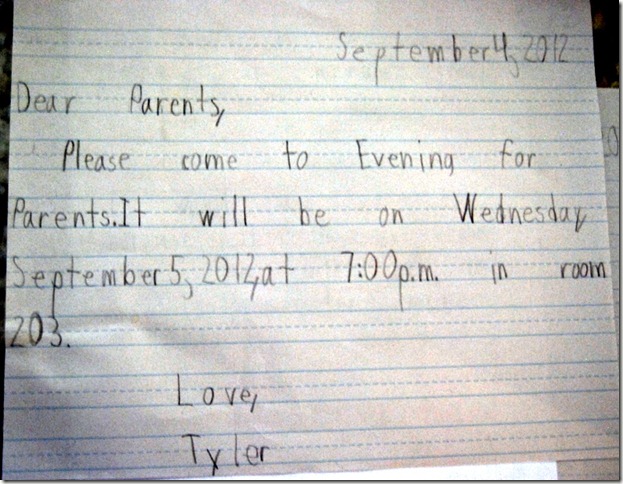 September 4, 2012
Dear Parents,
Please come to Evening for
Parents. It will be on Wednesday,
September 5, 2012, at 7:00 p.m. in room
203.
Love,
Tyler